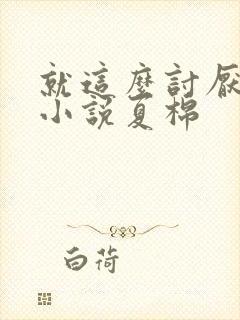 就這麼討厭
小說夏棉
白荷